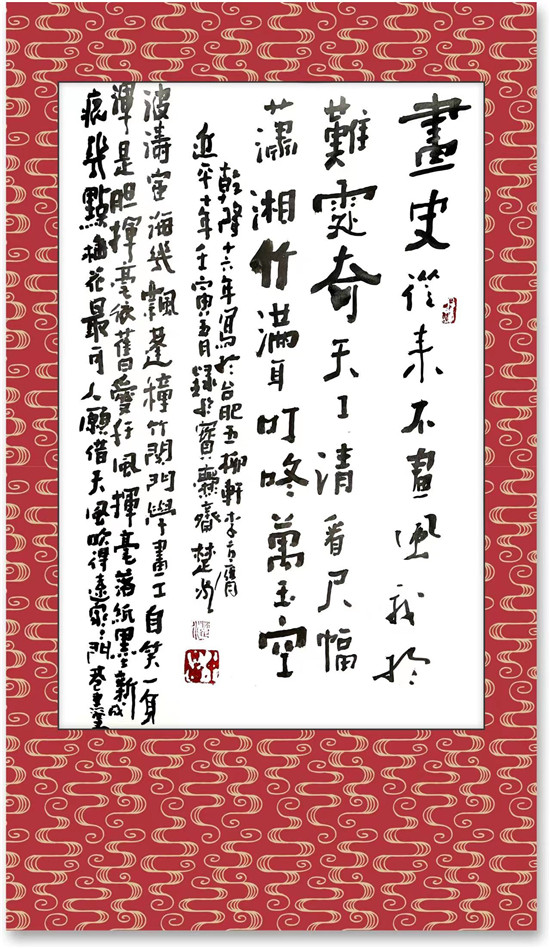 畫史從來不畫風我於
難處奇天工清看尺幅
蕭湘竹滿耳叮咚萬玉空
乾隆十六年寫於合肥五柳軒李方膺
近平十年壬寅五月録於寶齋
波濤宦海幾飄蓬種竹關門學畫工自笑一身
渾是胆揮毫依舊愛狂風揮毫落紙墨新
痕幾點梅花最可人願借天風吹得遠家々門巷盡